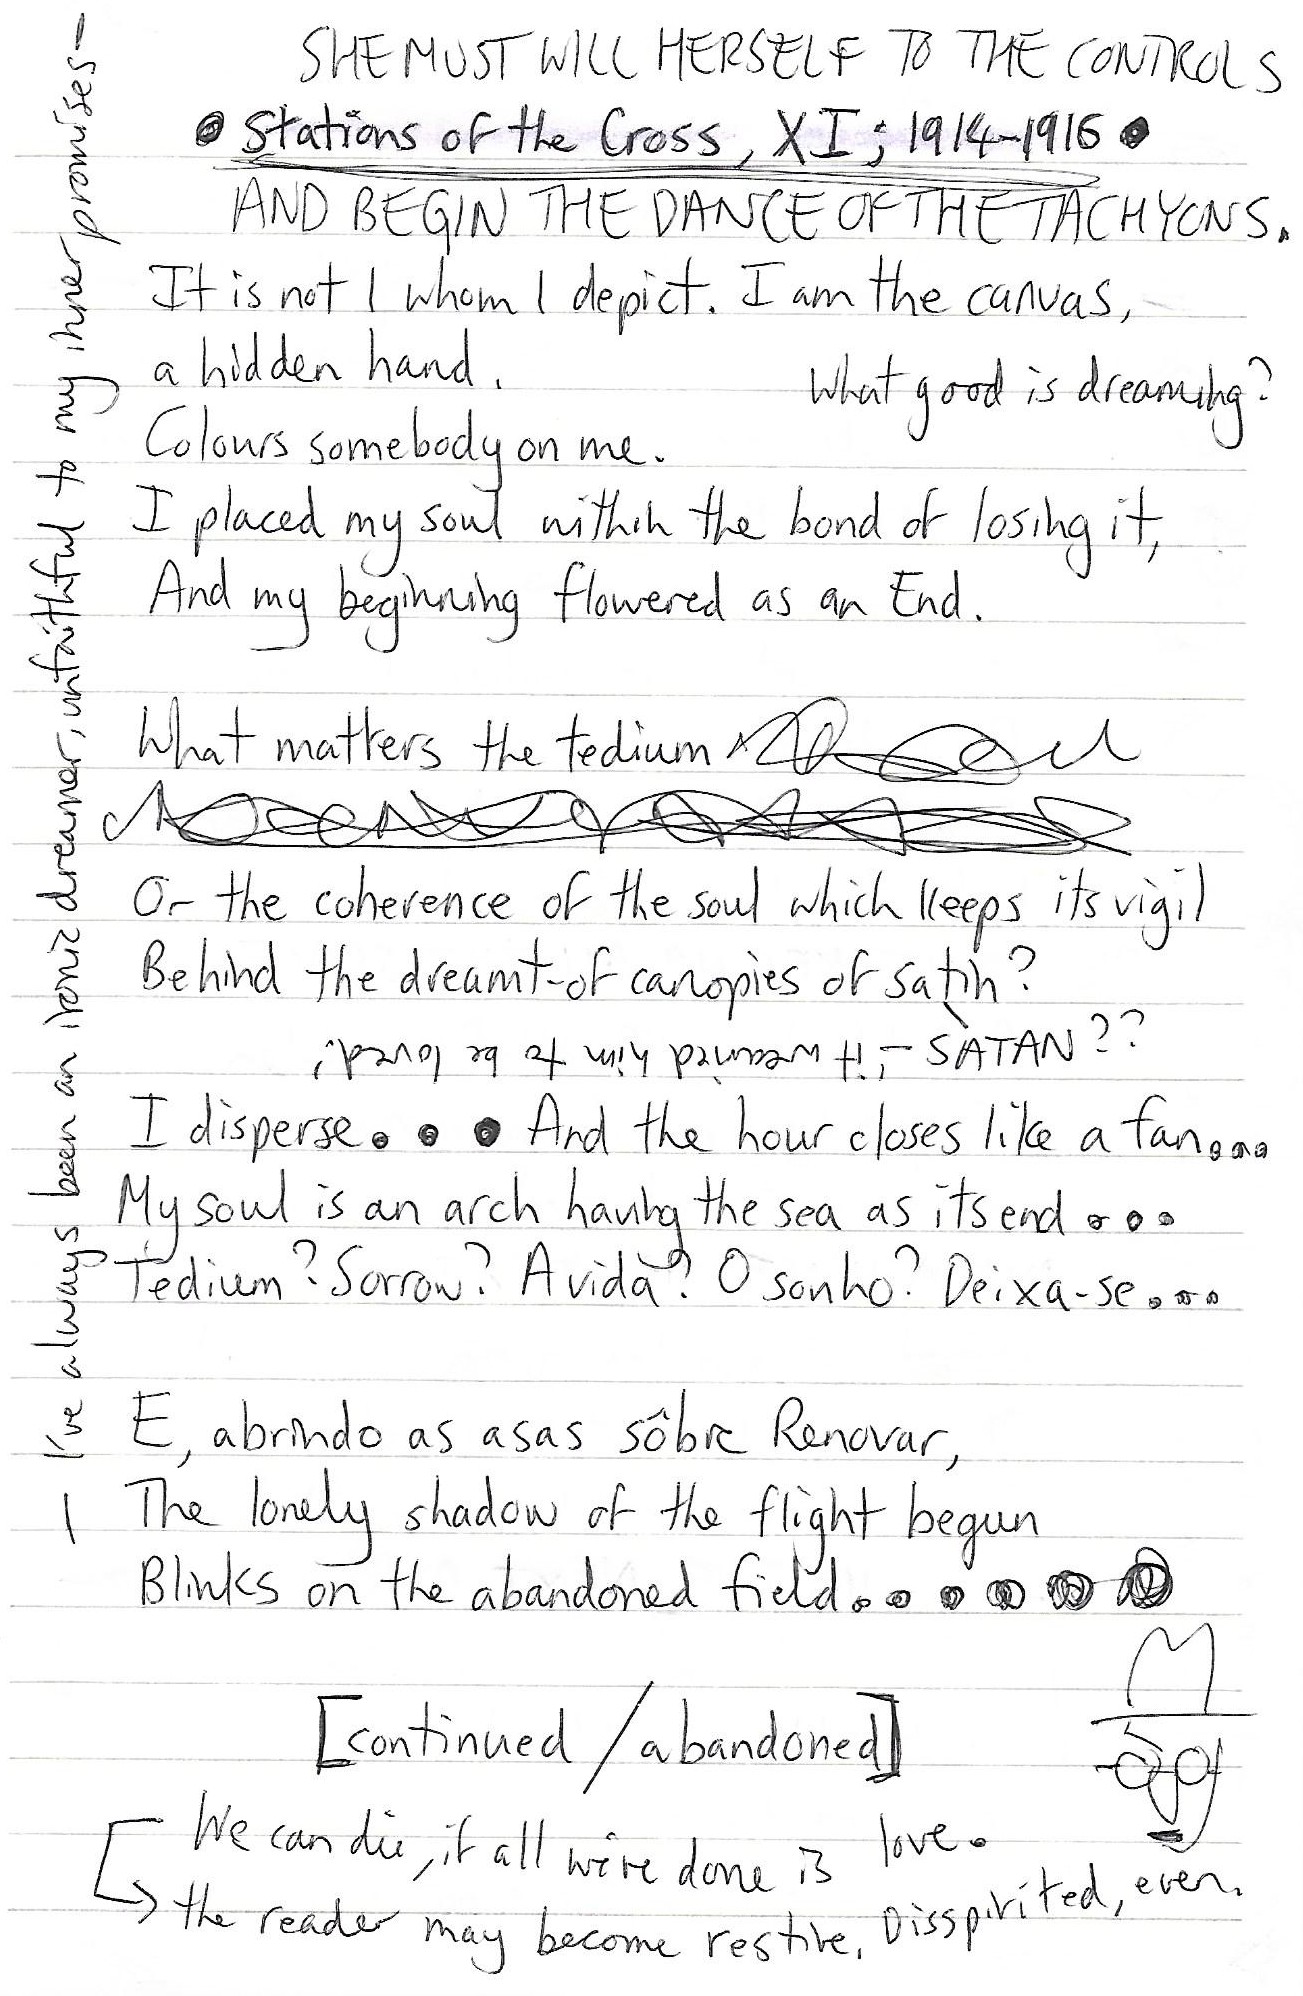 SHE MUST WILL HERSELF TO THE CONTROLS
Stations of the Cross, XI; 1914-1916
AND BEGIN THE DANCE OF THE TACHYONS.
It is not I whom I depict. I am the canvas,
a hidden hand.
What good is dreaming?
Colours somebody on me.
I placed my soul within the bond of losing it,
And my beginning flowered as an End.
What matters the tedium
Or the coherence of the soul which keeps its vigil
Behind the dreamt-of canopies of satin?
- SATAN??
;it wanted him to be loved;
I disperse... And the hour closes like a fan...
My soul is an arch having the sea as its end...
Tedium? Sorrow? A vida? O sonho? Deixa-se...
E, abrindo as asas sôbre Renovar,
The lonely shadow of the flight begun
Blinks on the abandoned field......
[continued / abandoned]
We can die, if all we've done is love.
the reader may become restive. Disspirited, even.
— I've always been an ironic dreamer, unfaithful to my inner promises—